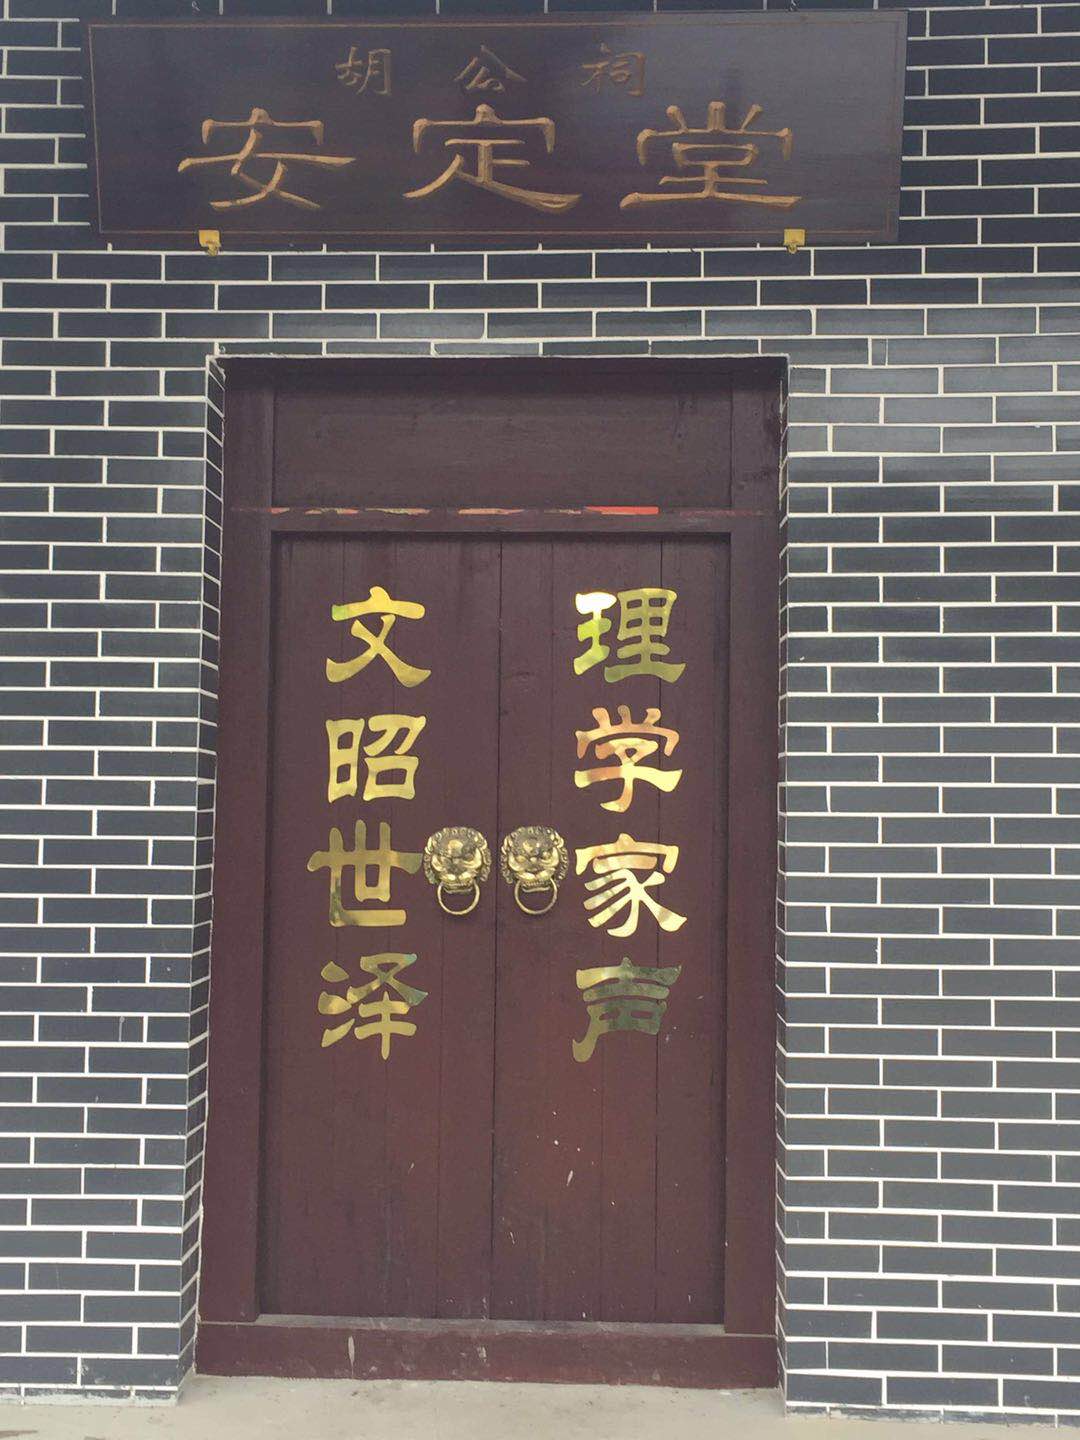 胡公祠
安定堂
理学家声
文昭世泽